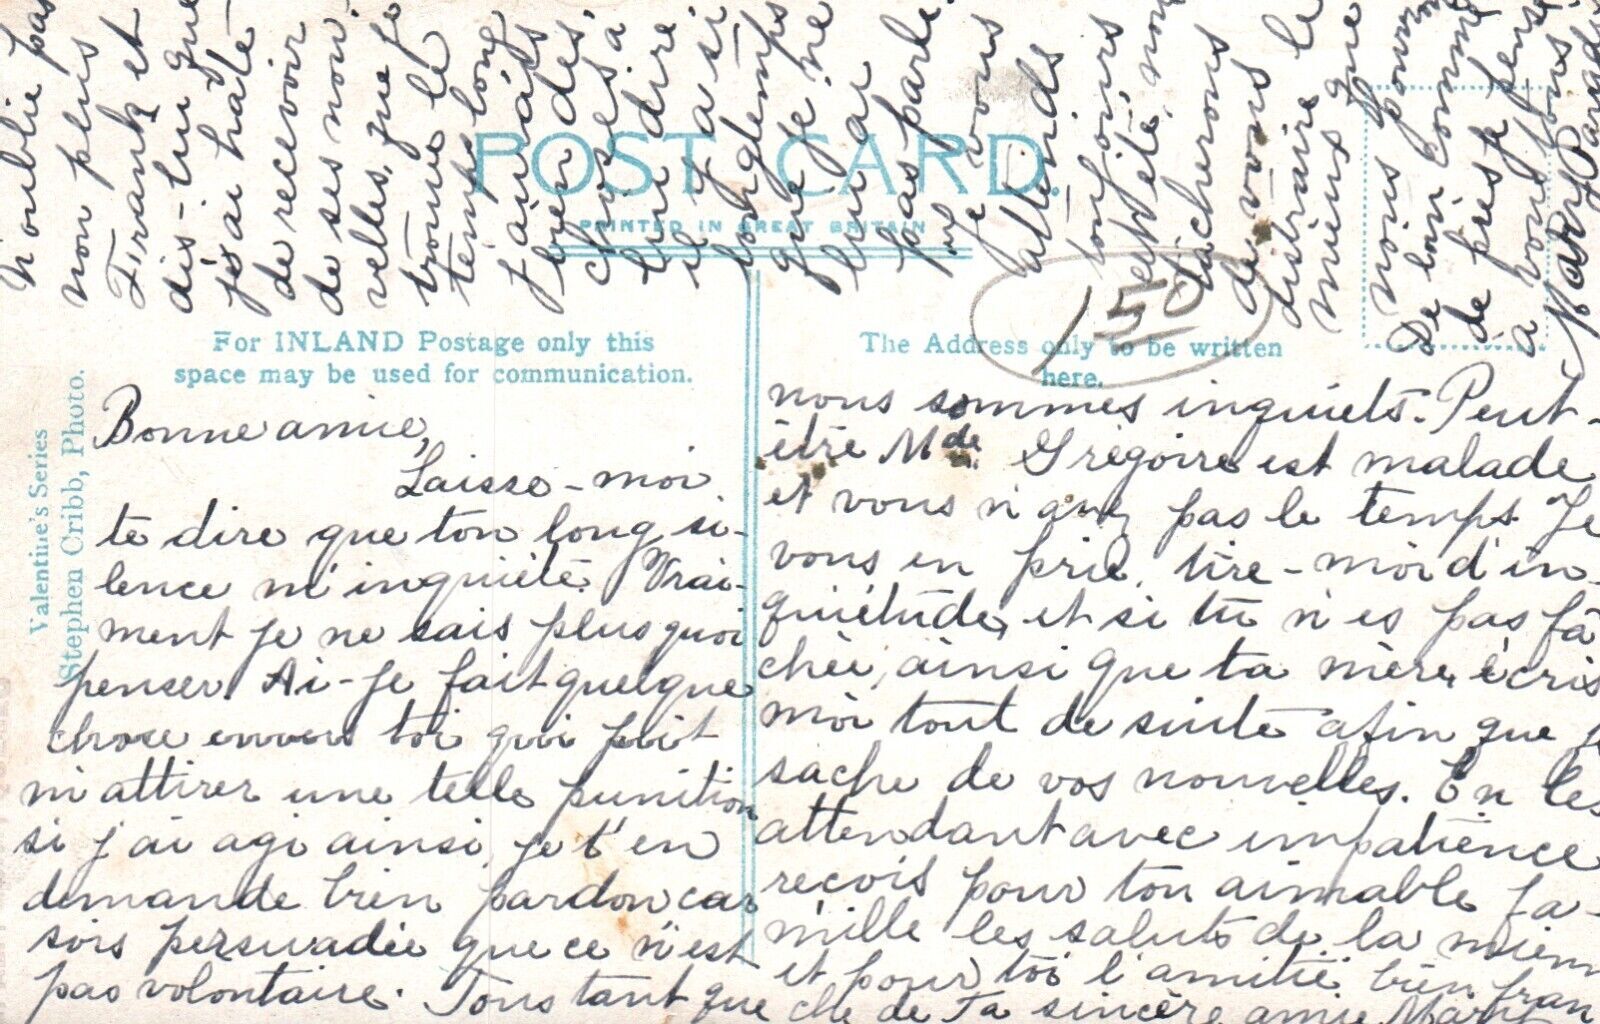 POST CARD.
PRINTED IN GREAT BRITAIN
For INLAND Postage only this
space may be used for communication.
The Address only to be written
here.
Valentine's Series
Stephen Cribb, Photo.
150
Bonne amie,
Laisse-moi
te dire que ton long si-
lence m'inquiète. Vrai-
ment je ne sais plus quoi
penser. Ai-je fait quelque
chose envers toi qui put
m'attirer une telle punition
si j'ai agi ainsi, je t'en
demande bien pardon car
sois persuadée que ce n'est
pas volontaire. Tous tant que
nous sommes inquiets. Peut-
être Mde Grégoire est malade
et vous n'avez pas le temps. Je
vous en prie, tire-moi d'in-
quiétude, et si tu n'es pas fâ
chée, ainsi que ta mère, écris
moi tout de suite afin que je
sache de vos nouvelles. En les
attendant avec impatience
reçois pour ton aimable fa-
mille les saluts de la mienne
et pour toi l'amitié bien fran
che de Ta sincère amie Mary
N'oublie pas
non plus
Frank et
dis-lui que
j'ai hâte
de recevoir
de ses nou-
velles, que je
trouve le
temps long
J'aurais
bien des
choses à
lui dire
il y a si
longtemps
que je ne
lui ai
pas parlé.
Je vous
attends
toujours
cet été, nous
tâcherons
de vous
distraire le
mieux que
nous pourrons
De loin comme
de près je pense
à vous tous
Mary Paradis